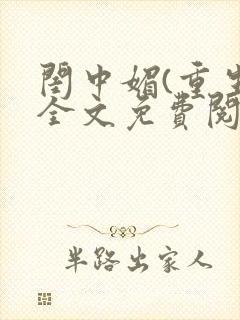 閨中媚(重生
全文免費閱
半路出家人